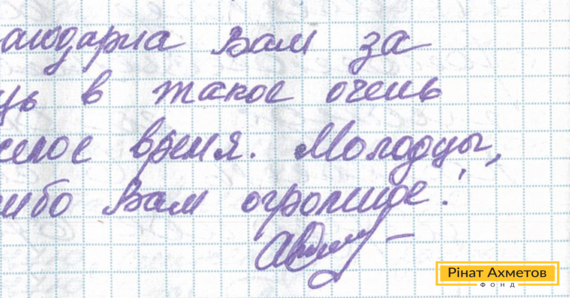 агодарна Вам за
щь в такое очень
желое время. Молодцы,
сибо Вам огромное!
Рінат Ахметов
ФОНД